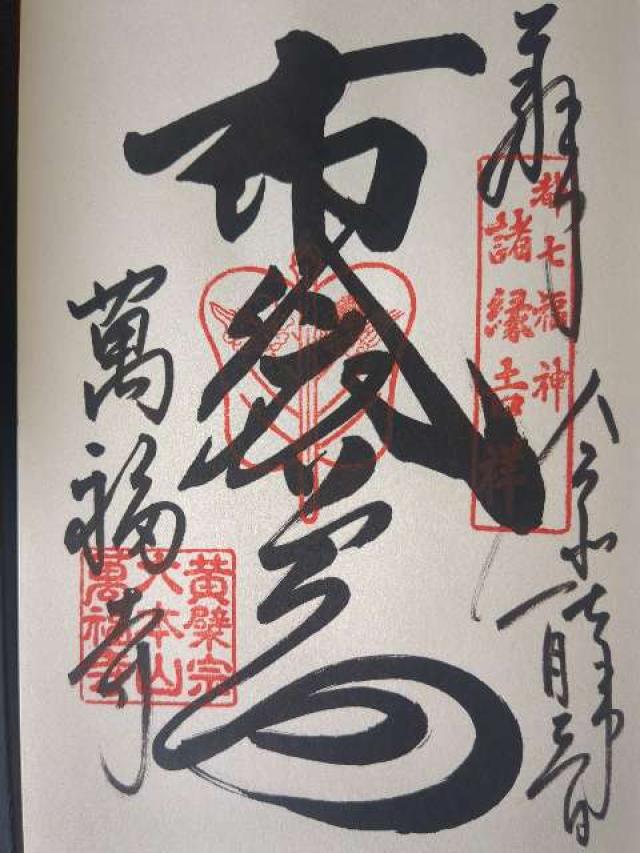 拜
都七福神
諸縁吉祥
令和七年
一月三日
布袋尊
萬福寺
黄檗宗
大本山
萬福寺